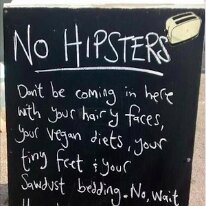 NO HIPSTERS
Don't be coming in here
with your hairy faces,
your vegan diets, your
tiny feet & your
Sawdust bedding. No, wait